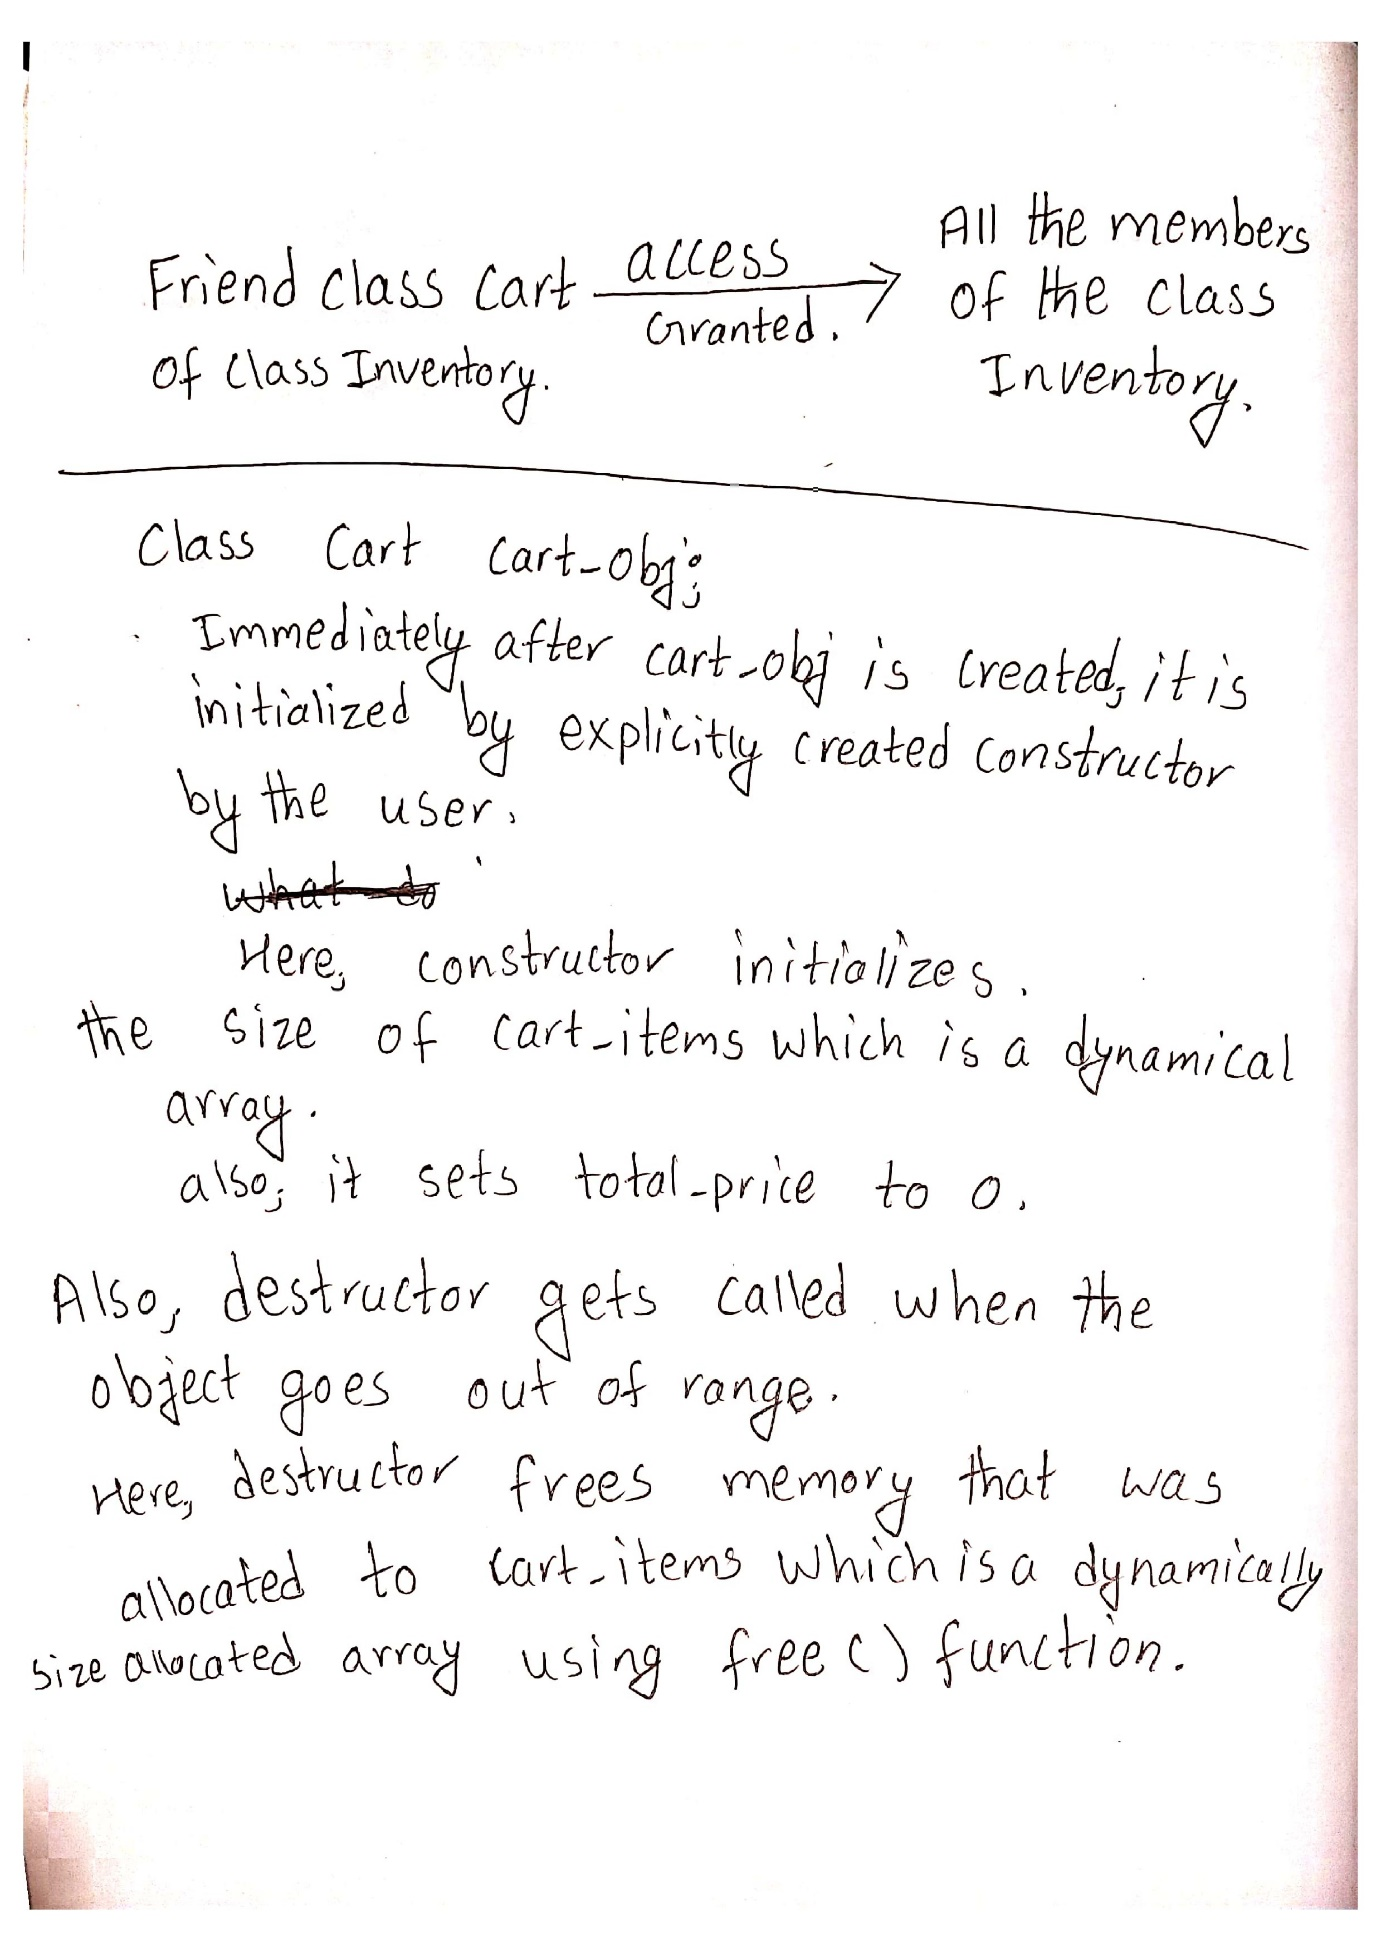 Friend class Cart access
Granted.
of Class Inventory.
All the members
of the class
Inventory.
Class Cart Cart-obj;
Immediately after cart-obj is created, it is
initialized by explicitly created constructor
by the user.
What do
Here, constructor initializes.
the size of cart-items which is a dynamical
array.
also, it sets total-price to 0.
Also, destructor gets called when the
object goes out of range.
Here, destructor frees memory that was
allocated to cart-items which is a dynamically
size allocated array using free () function.